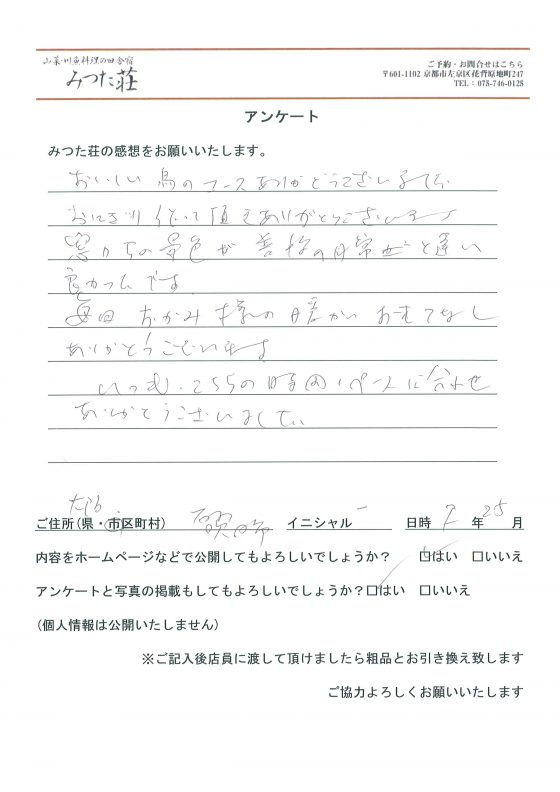 山菜・川魚料理の田舎宿
みつた荘
ご予約・お問合せはこちら
〒601-1102 京都市左京区花脊原地町247
TEL：075-746-0128
アンケート
みつた荘の感想をお願いいたします。
おいしい鳥のコースありがとうございました。
おにぎり 作って頂きありがとうございます
窓からの景色が普段の日常と違い
良かったです。
毎回 おかみ様の暖かいおもてなし
ありがとうございます
いつも、こちらの時間、ペースに合わせ
ありがとうございました。
ご住所(県・市区町村) イニシャル 日時 7 年 25 月
内容をホームページなどで公開してもよろしいでしょうか？ □はい □いいえ
アンケートと写真の掲載もしてもよろしいでしょうか？□はい □いいえ
(個人情報は公開いたしません)
※ご記入後店員に渡して頂けましたら粗品とお引き換え致します
ご協力よろしくお願いいたします